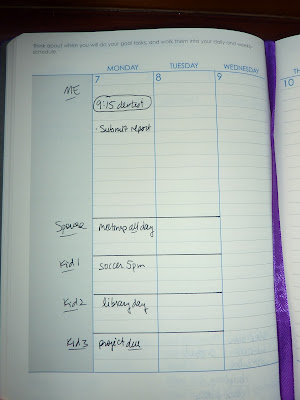 Think about when you will do your goal tasks, and work them into your daily and weekly
schedule.
MONDAY TUESDAY WEDNESDAY
7 8 9 10
ME
9:15 dentist
· Submit report
Spouse meetings all day
Kid 1 soccer 5pm
Kid 2 library day
Kid 3 project due